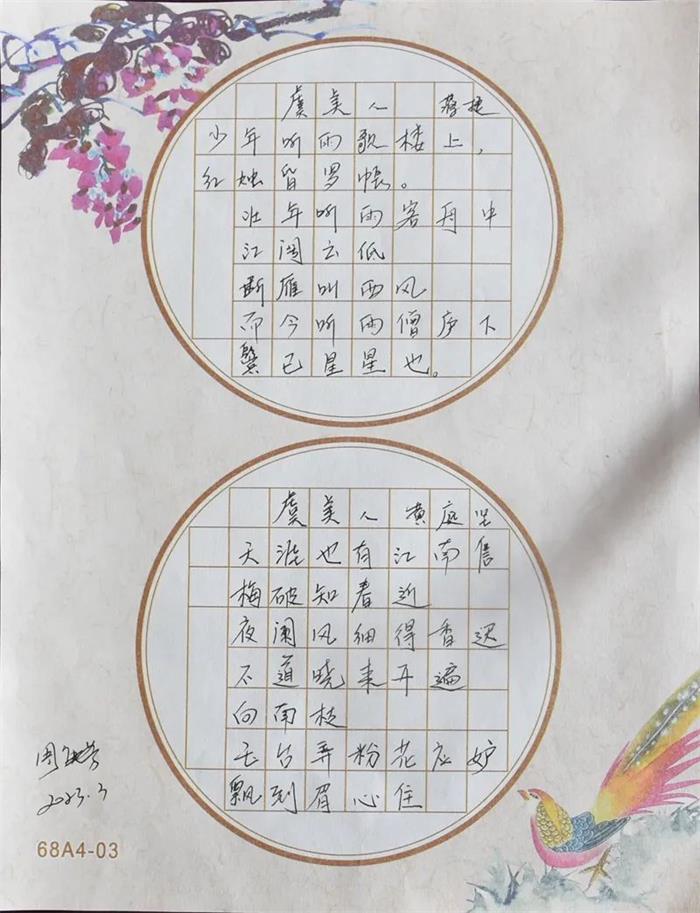 虞美人 蒋捷
少年听雨歌楼上，
红烛昏罗帐。
壮年听雨客舟中
江阔云低
断雁叫西风
而今听雨僧庐下
鬓已星星也。
虞美人 黄庭坚
天涯也有江南信
梅破知春近
夜阑风细得香迟
不道晓来开遍
向南枝
玉台弄粉花应妒
飘到眉心住
2023.3
68A4-03